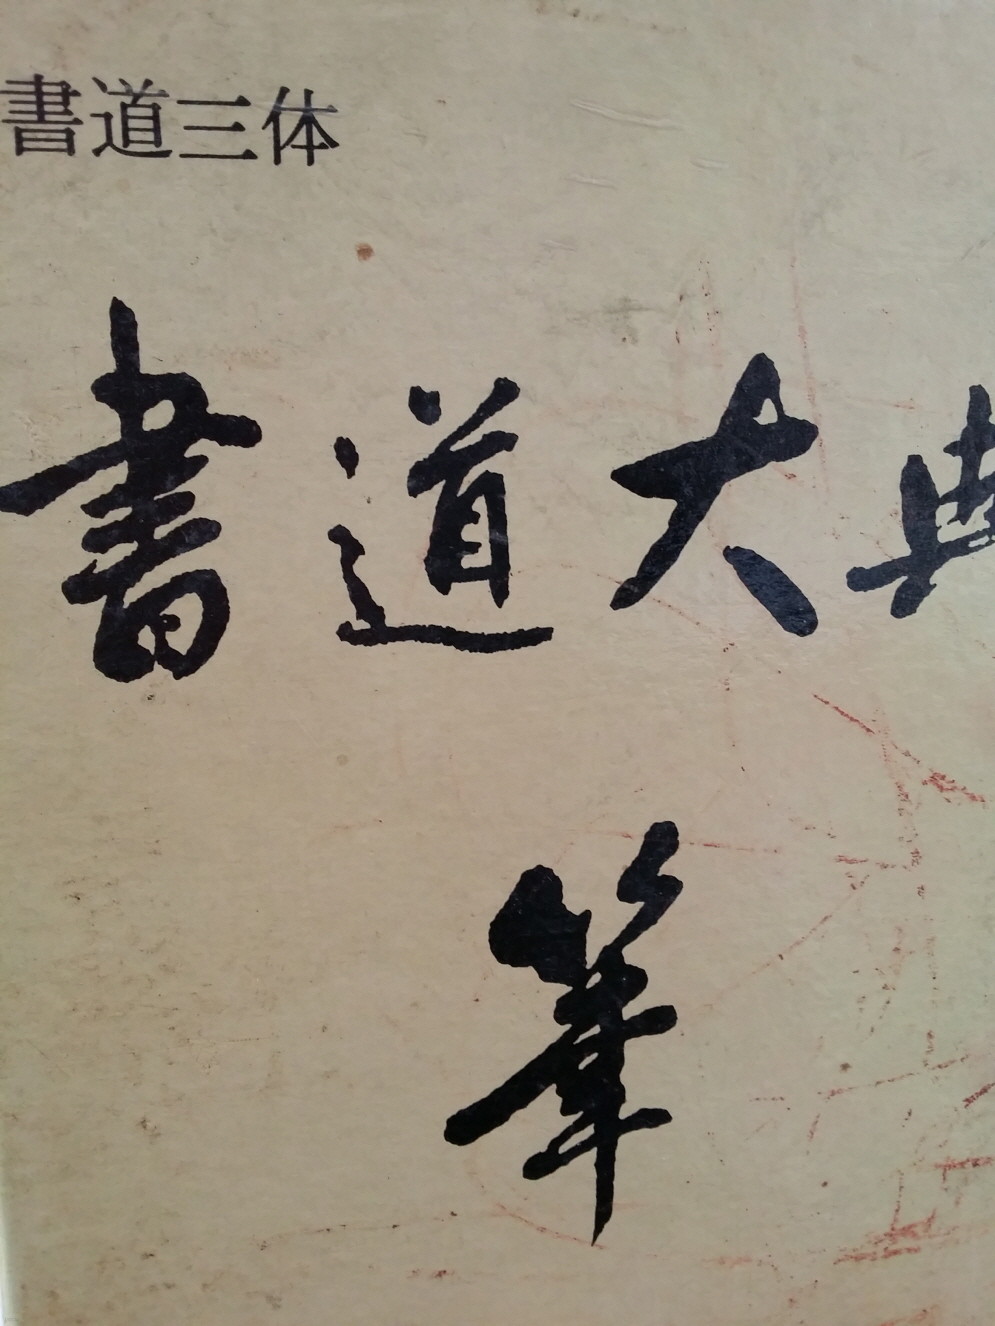 書道三体
書道大典
筆